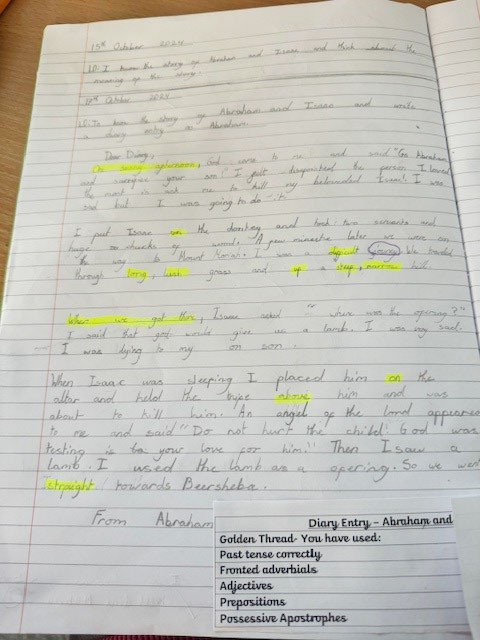 15th October 2024
LO: I know the story of Abraham and Isaac and think about the
meaning of the story.
17th October 2024
LO: To know the story of Abraham and Isaac and write
a diary entry as Abraham.
Dear Diary,
One sunny afternoon, God came to me and said "Go Abraham
and sacrifice your son!" I felt disapointed the person I loved
the most is not me to kill my beloved Isaac! I was
sad but I was going to do it.
I put Isaac on the donkey and took two servants and
huge chucks of wood. A few minute later we were on
the way to Mount Moriah. I was a difficult journey We travled
through long, lush grass and up a steep, narrow hill.
When we got there, Isaac asked "where was the opering?"
I said that god would give us a lamb. I was very sad.
I was lying to my on son.
When Isaac was sleeping I placed him on the
altar and held the knife above him and was
about to kill him. An angel of the lord appeared
to me and said "Do not hurt the child! God was
testing is to your love for him!" Then I saw a
lamb. I used the lamb as a opering. So we went
straight towards Beersheba.
From Abraham
Diary Entry – Abraham and
Golden Thread- You have used:
Past tense correctly
Fronted adverbials
Adjectives
Prepositions
Possessive Apostrophes